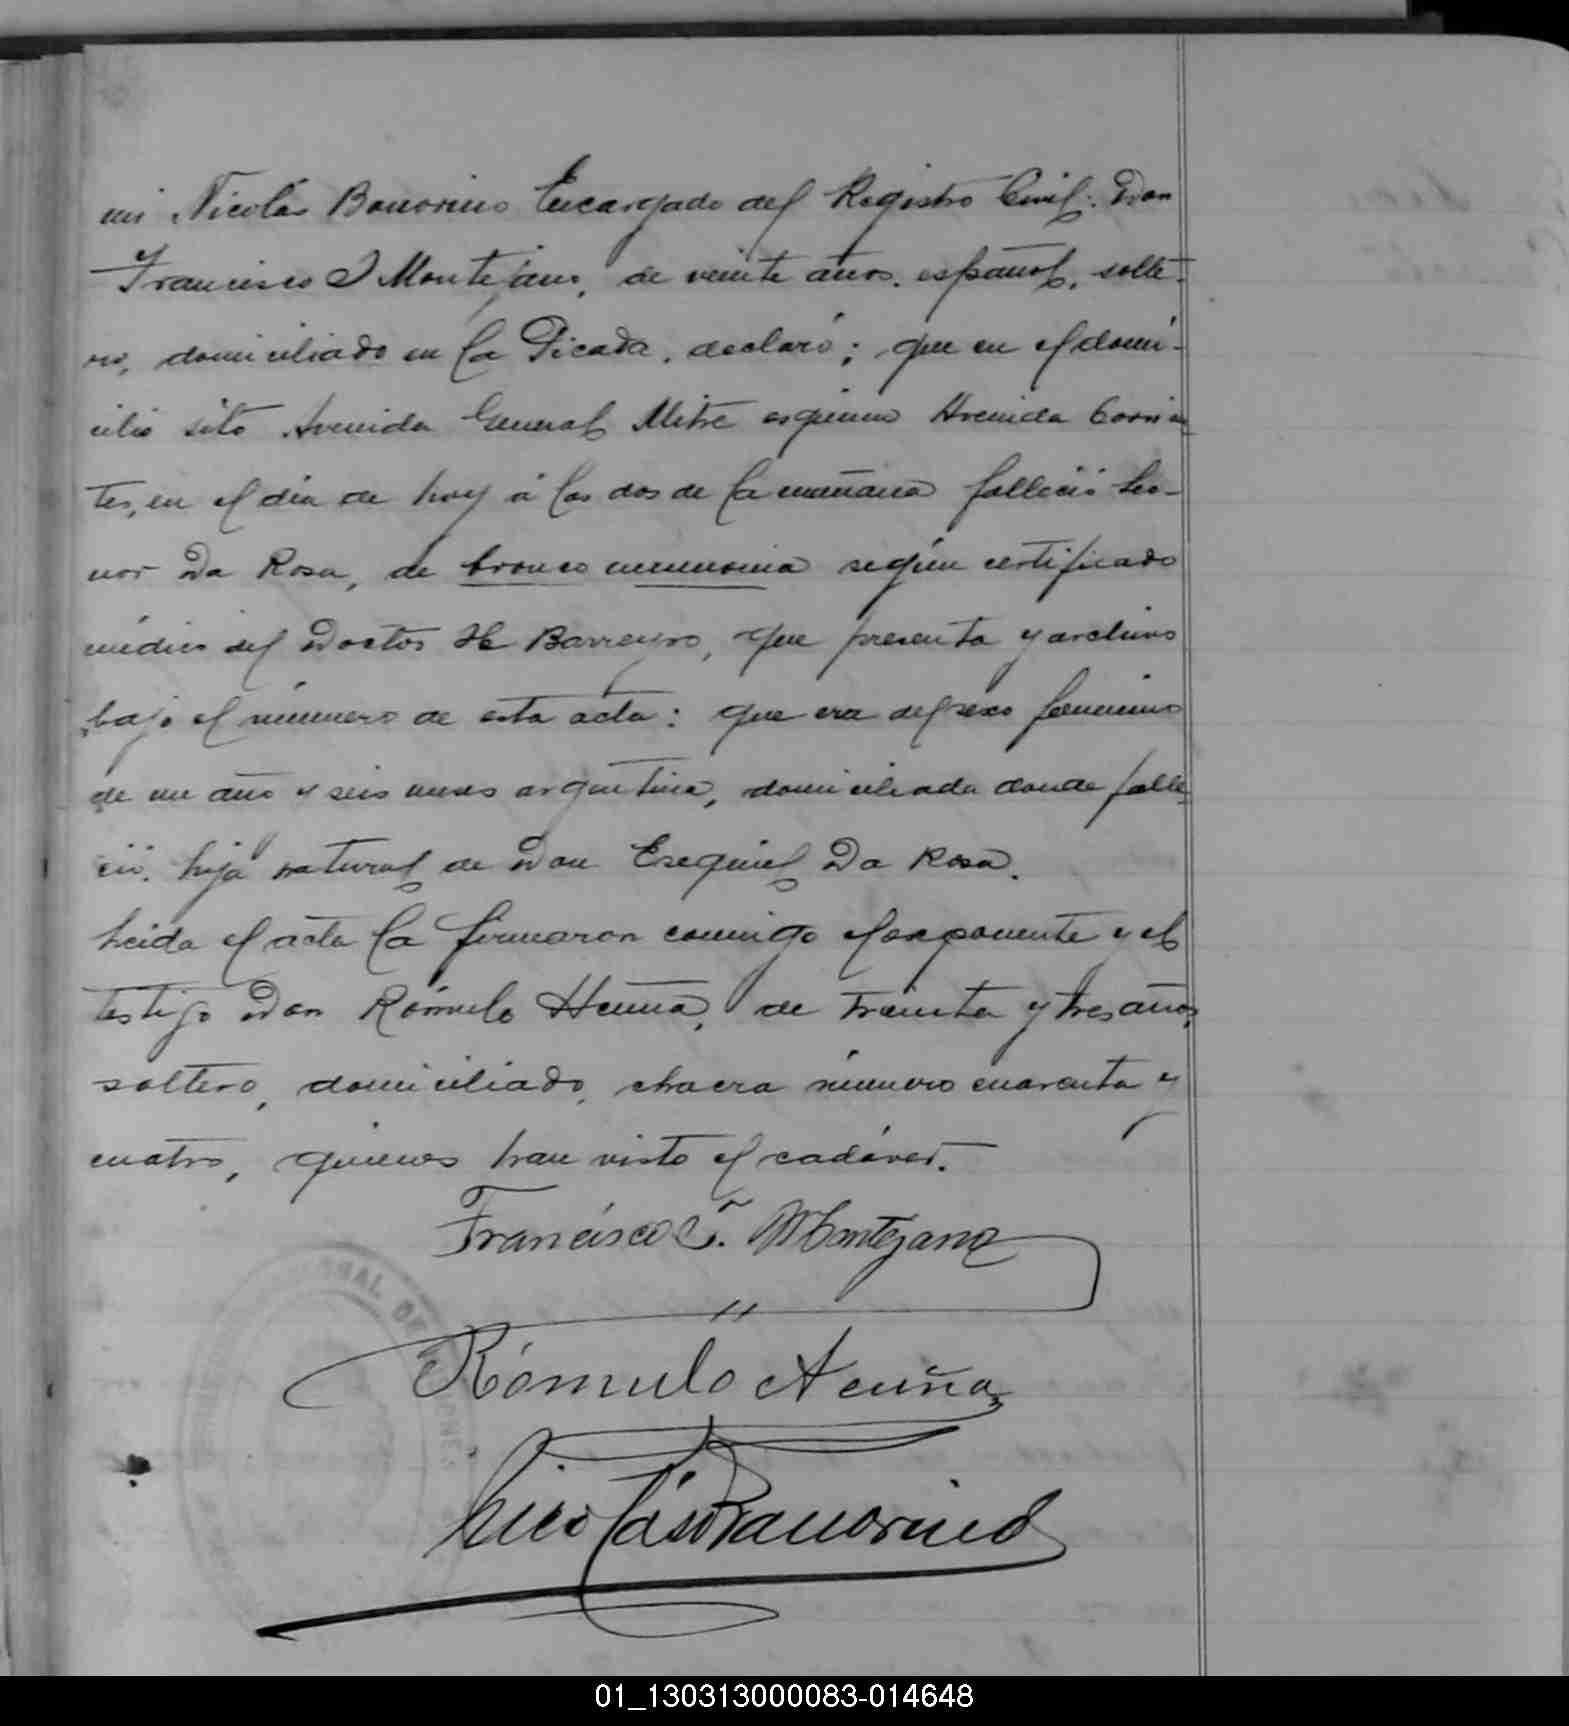 mi Nicolás Bonorino Encargado del Registro Civil: Don
Francisco J Montejano, de veinte años, español, solte-
ro, domiciliado en la Picada, declaró; que en el domi-
cilio sito Avenida General Mitre esquina Avenida Corrien
tes, en el día de hoy á las dos de la mañana falleció Leo-
nor Da Rosa, de bronco neumonia según certificado
médico del Doctor H Barreyro, que presenta y archivo
bajo el número de esta acta: que era del sexo femenino
de un año y seis meses argentina, domiciliada donde falle
ció, hija natural de Don Esequiel Da Rosa.
Leida el acta la firmaron conmigo el exponente y el
testigo Don Rómulo Acuña, de treinta y tres años,
soltero, domiciliado, chacra número cuarenta y
cuatro, quienes han visto el cadáver.
Francisco Montejano
Rómulo Acuña
Nicolás Bonorino
01_130313000083-014648